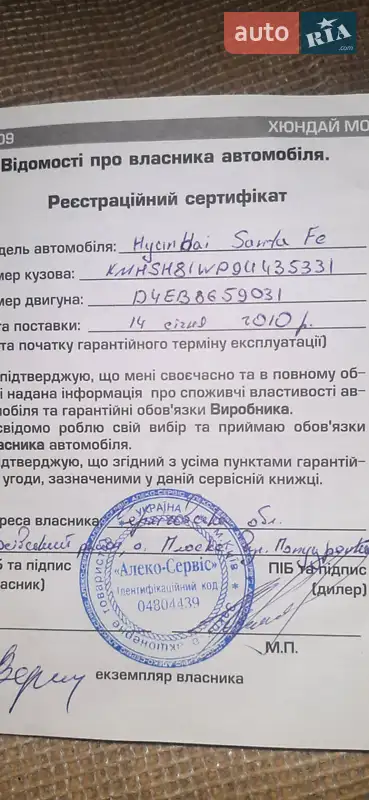 auto RIA
.com
09
ХЮНДАЙ МО
Відомості про власника автомобіля.
Реєстраційний сертифікат
дель автомобіля: Hyundai Santa Fe
мер кузова: KMHSH81WP9U435331
мер двигуна: D4EB8659031
та поставки: 14 січня 2010 р.
та початку гарантійного терміну експлуатації)
підтверджую, що мені своєчасно та в повному об-
і надана інформація про споживчі властивості ав-
мобіля та гарантійні обов'язки Виробника.
свідомо роблю свій вибір та приймаю обов'язки
асника автомобіля.
дтверджую, що згідний з усіма пунктами гарантій-
угоди, зазначеними у даній сервісній книжці.
реса власника обл.
Б та підпис
ПІБ та підпис
асник)
(дилер)
УКРАЇНА
«Алеко-Сервіс»
Ідентифікаційний код
04804439
М.П.
екземпляр власника